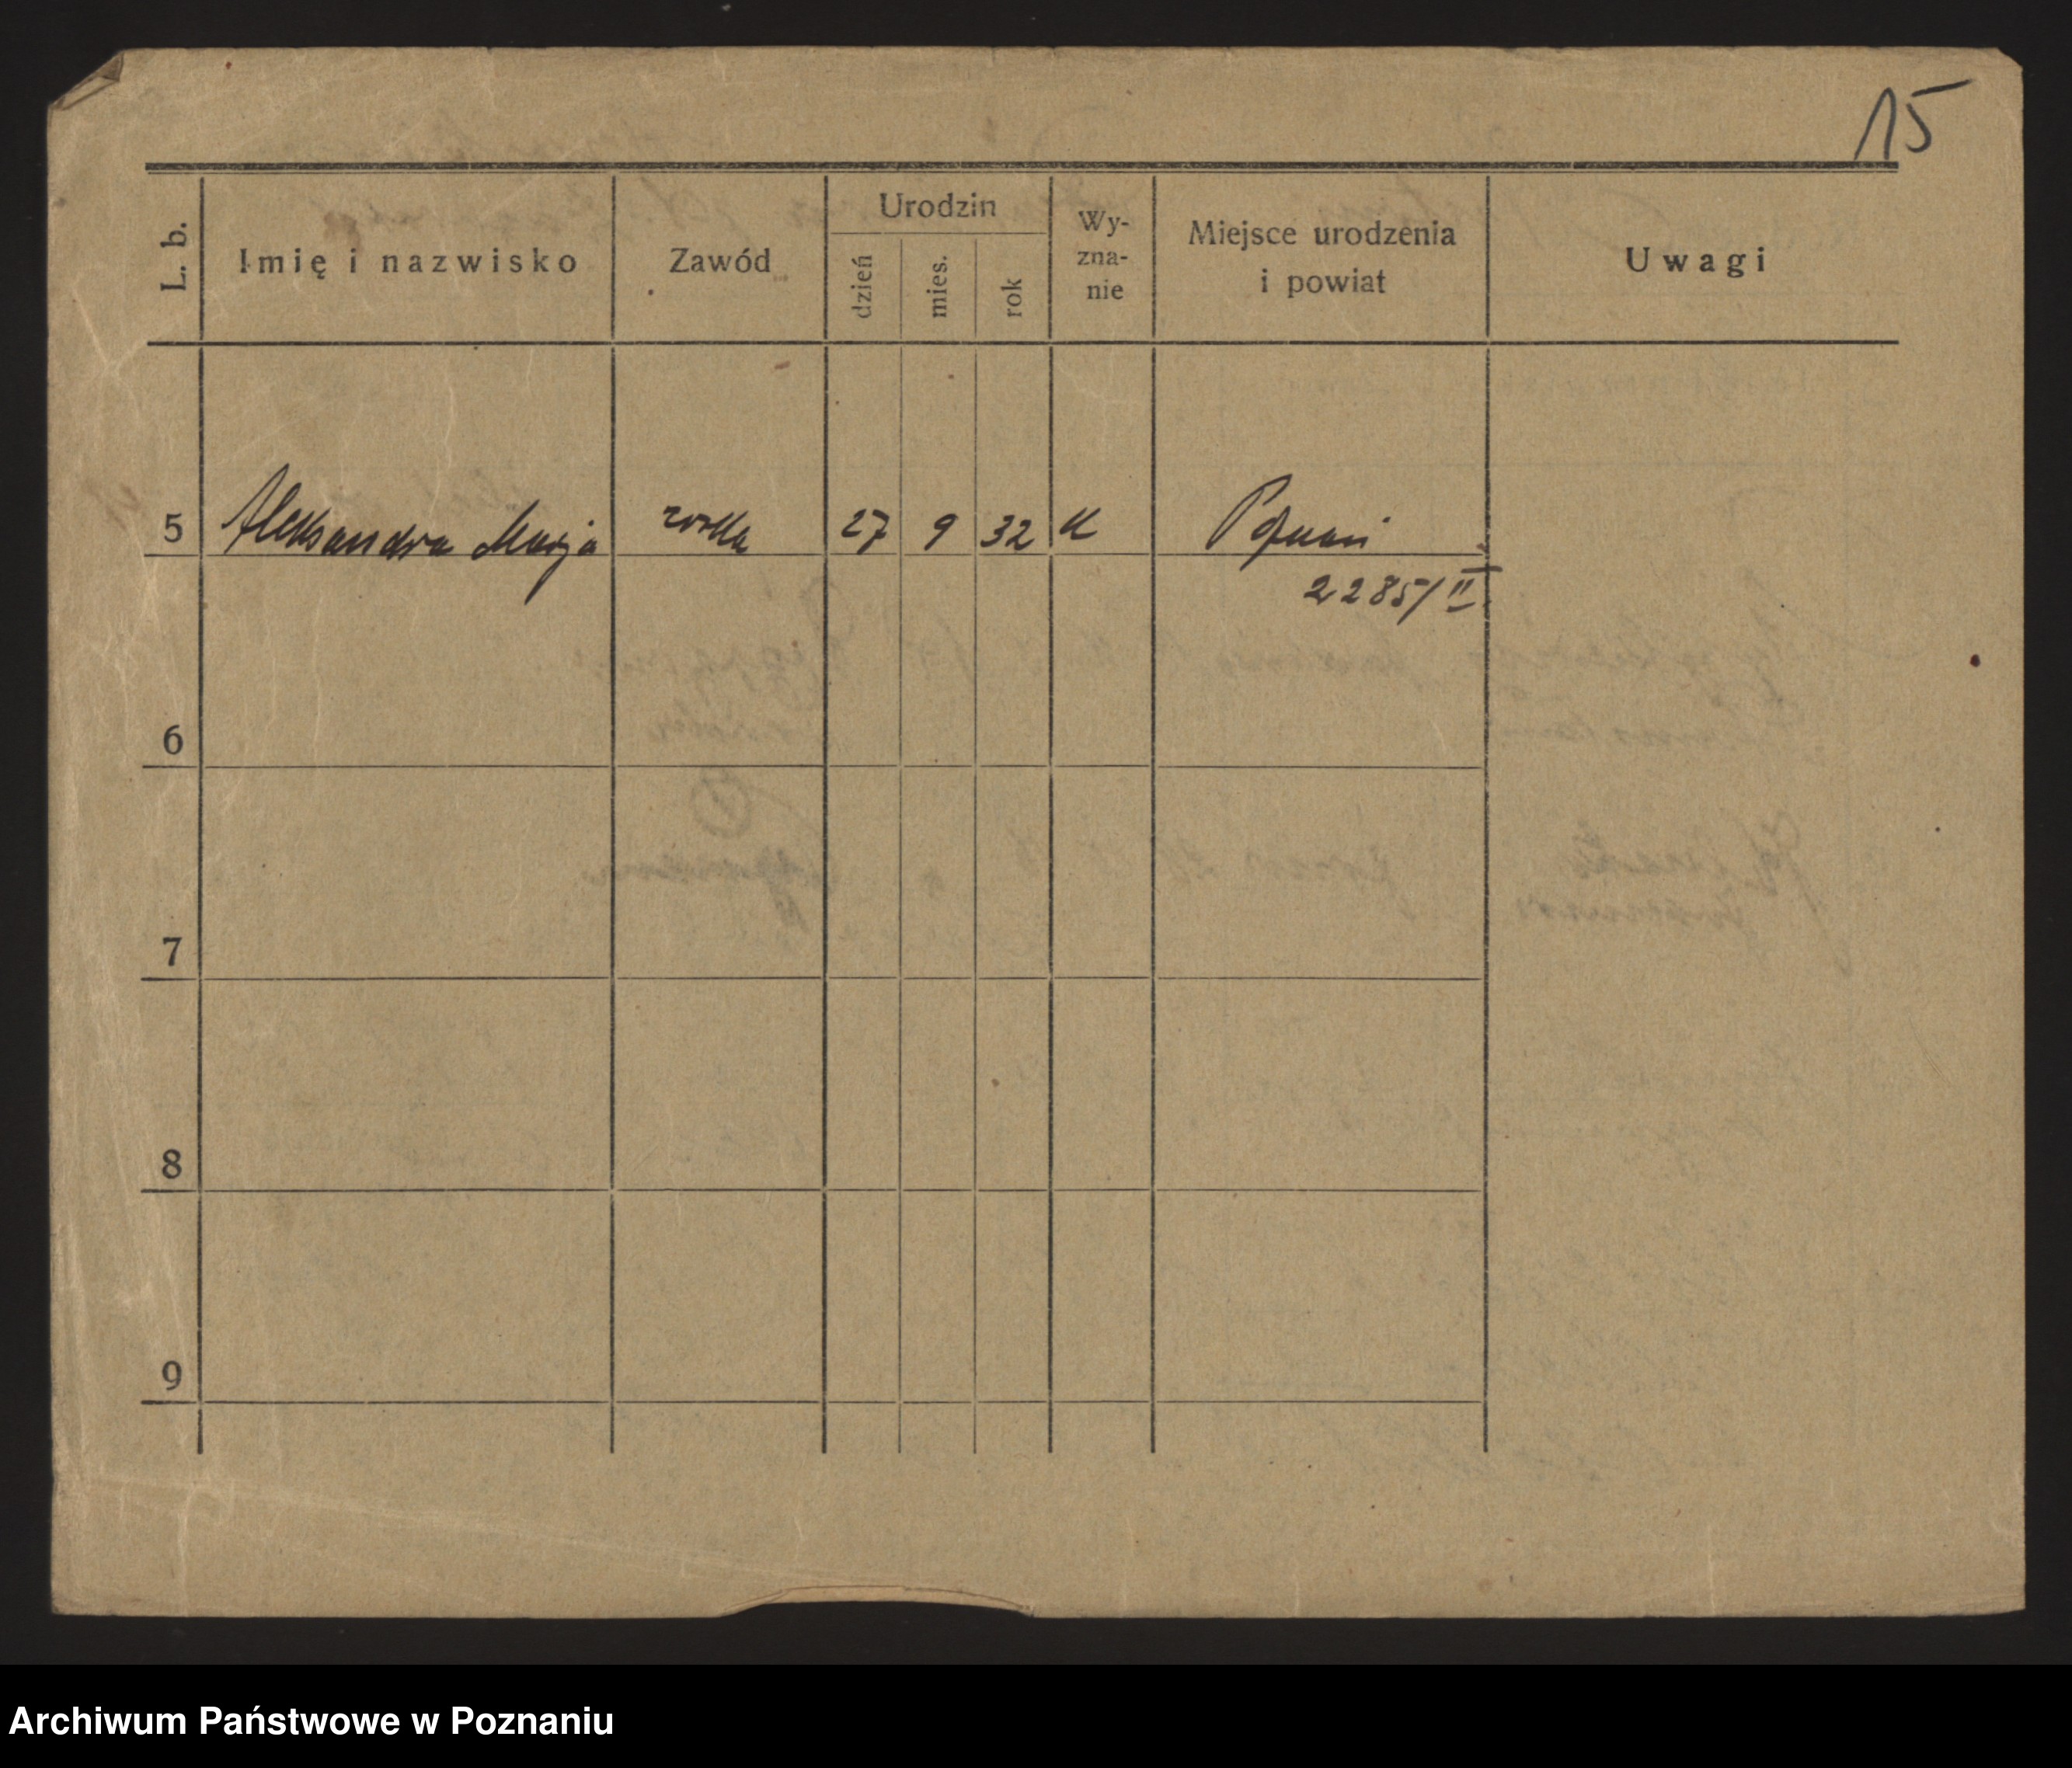 15
L. b.
Imię i nazwisko
Zawód
Urodzin
dzień
mies.
rok
Wy-
zna-
nie
Miejsce urodzenia
i powiat
Uwagi
5 Aleksandra Marja córka 27 9 32 k Poznań
2285/II
6
7
8
9
Archiwum Państwowe w Poznaniu